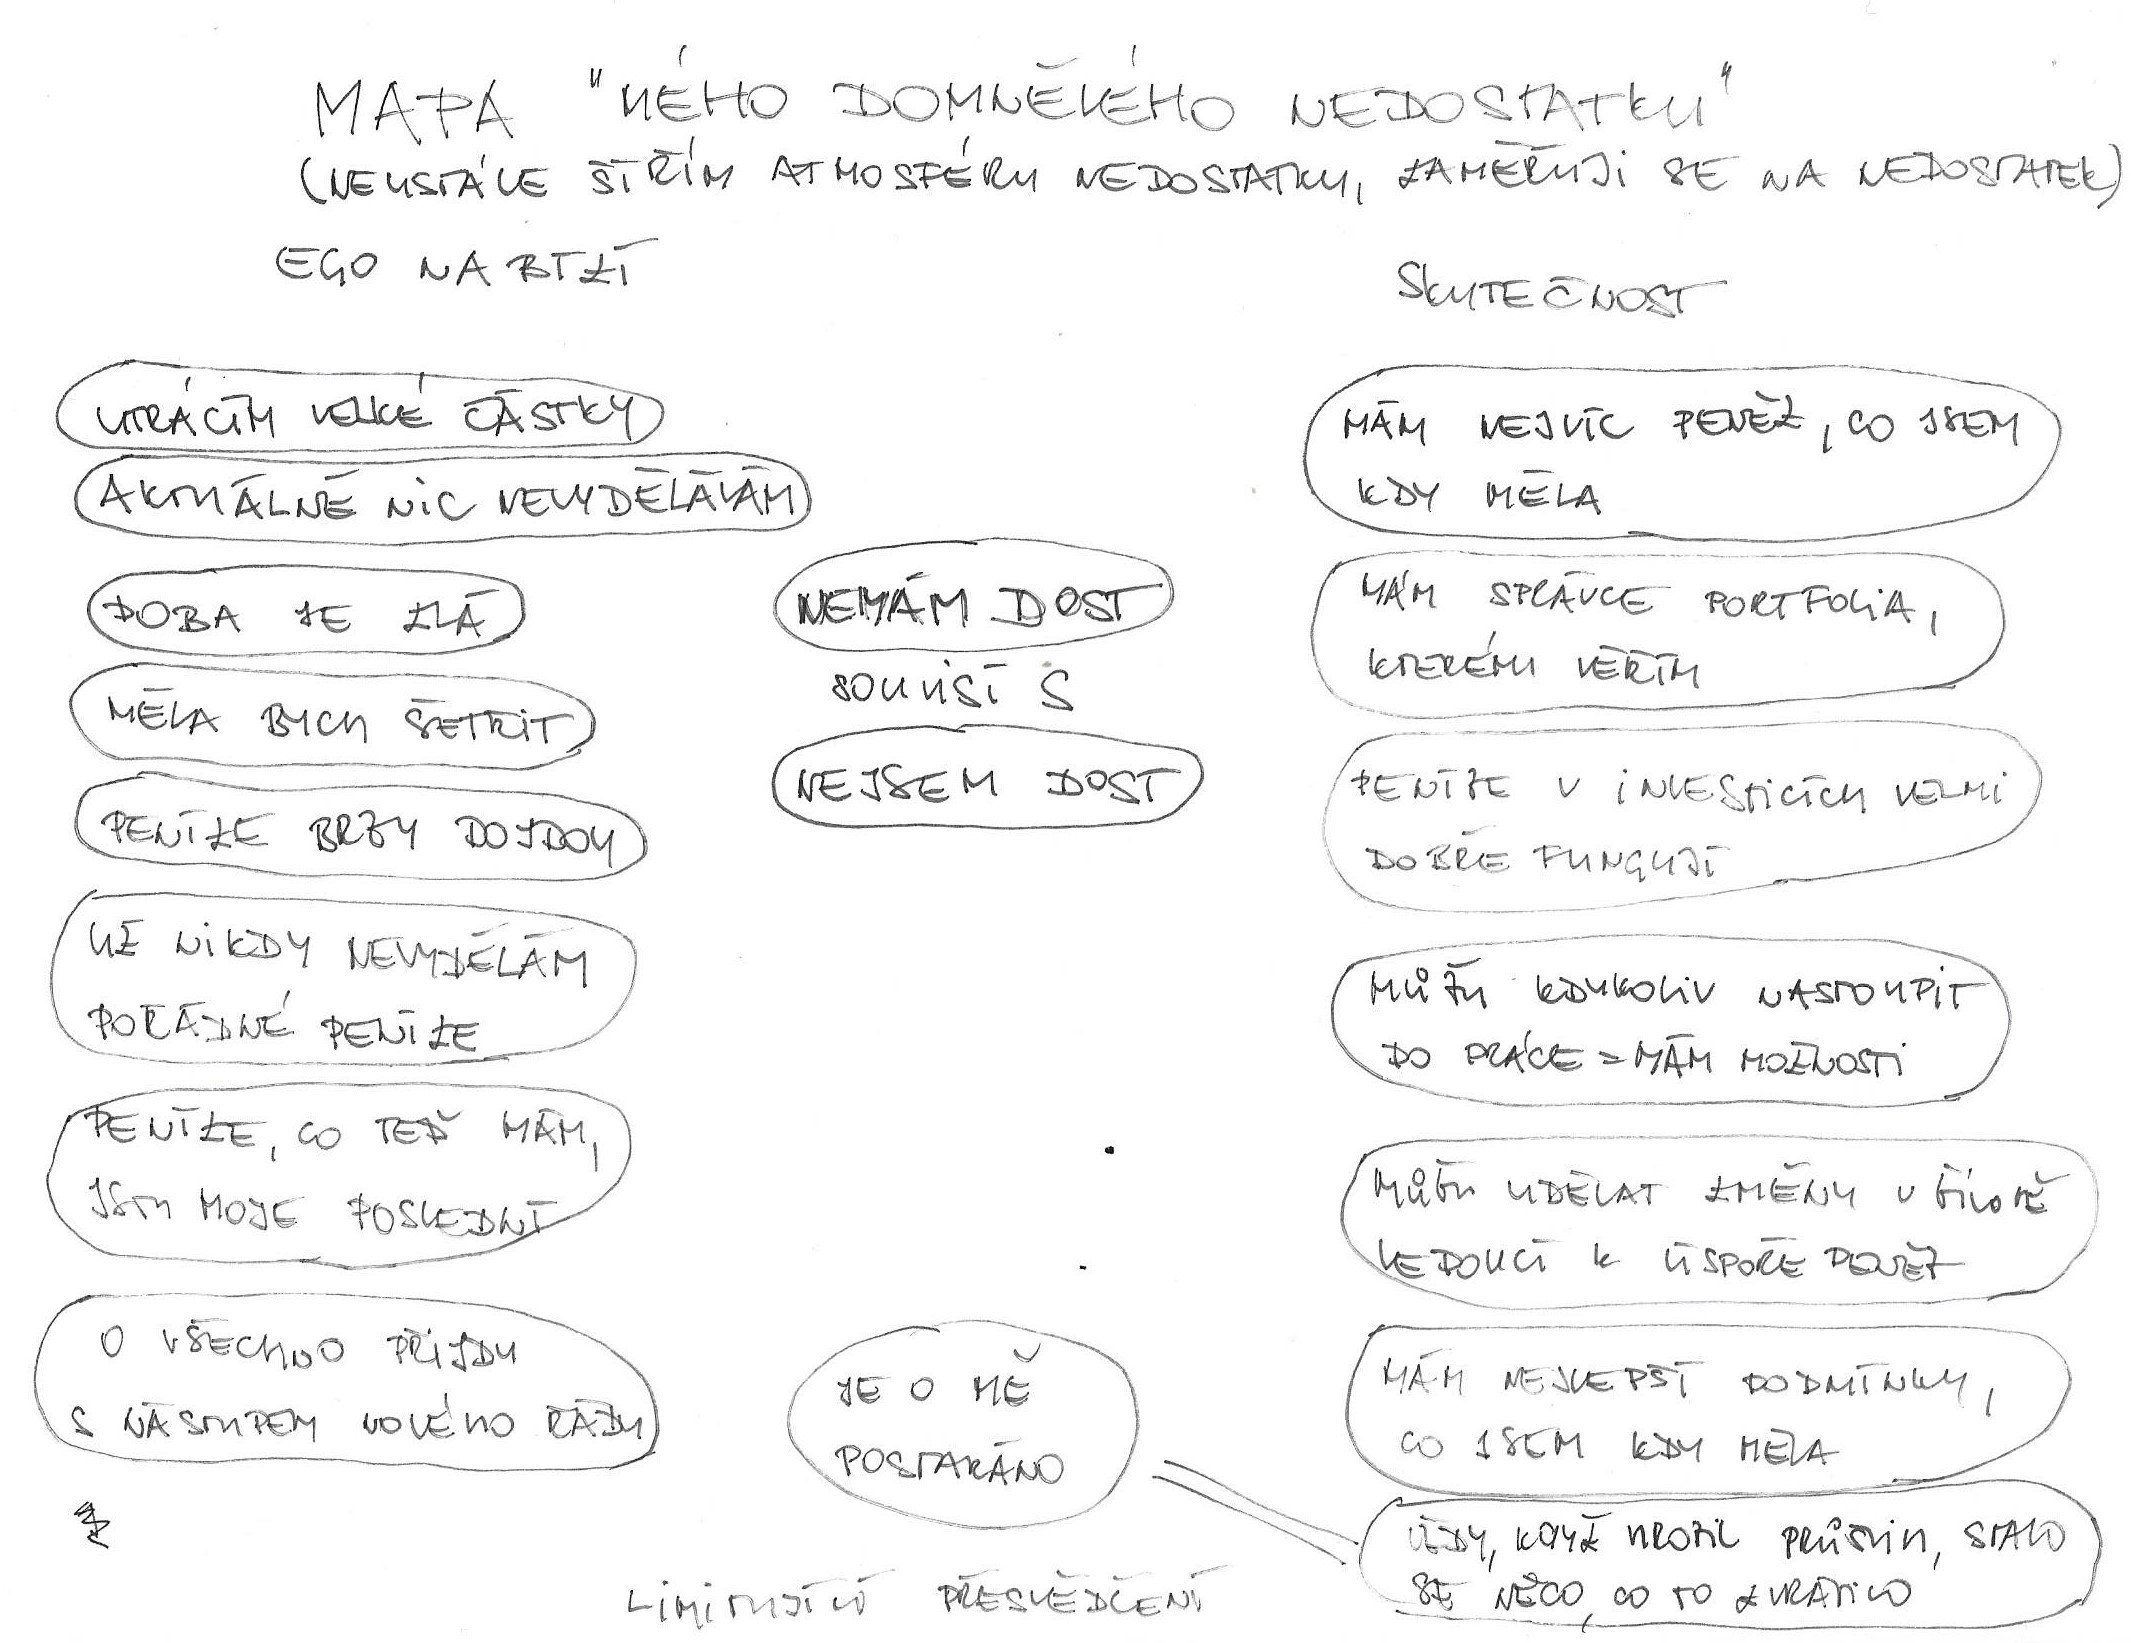 MAPA "MÉHO DOMNĚLÉHO NEDOSTATKU"
(NEUSTÁLE ŠÍŘÍM ATMOSFÉRU NEDOSTATKU, ZAMĚŘUJI SE NA NEDOSTATEK)
EGO NABÍZÍ
UTRÁCÍM VELKÉ ČÁSTKY
AKTUÁLNĚ NIC NEVYDĚLÁVÁM
DOBA JE ZLÁ
MĚLA BYCH ŠETŘIT
PENÍZE BRZY DOJDOU
UŽ NIKDY NEVYDĚLÁM
POŘÁDNÉ PENÍZE
PENÍZE, CO TEĎ MÁM,
JSOU MOJE POSLEDNÍ
O VŠECHNO PŘIJDU
S NÁSTUPEM NOVÉHO ŘÁDU
NEMÁM DOST
SOUVISÍ S
NEJSEM DOST
JE O MĚ
POSTARÁNO
LIMITUJÍCÍ PŘESVĚDČENÍ
SKUTEČNOST
MÁM NEJVÍC PENĚZ, CO JSEM
KDY MĚLA
MÁM SPRÁVCE PORTFOLIA,
KTERÉMU VĚŘÍM
PENÍZE V INVESTICÍCH VELMI
DOBŘE FUNGUJÍ
MŮŽU KDYKOLIV NASTOUPIT
DO PRÁCE = MÁM MOŽNOSTI
MŮŽU UDĚLAT ZMĚNY V ŽIVOTĚ
VEDOUCÍ K ÚSPOŘE PENĚZ
MÁM NEJLEPŠÍ PODMÍNKY,
CO JSEM KDY MĚLA
VŽDY, KDYŽ HROZIL PRŮŠVIH, STALO
SE NĚCO, CO TO ZVRÁTILO